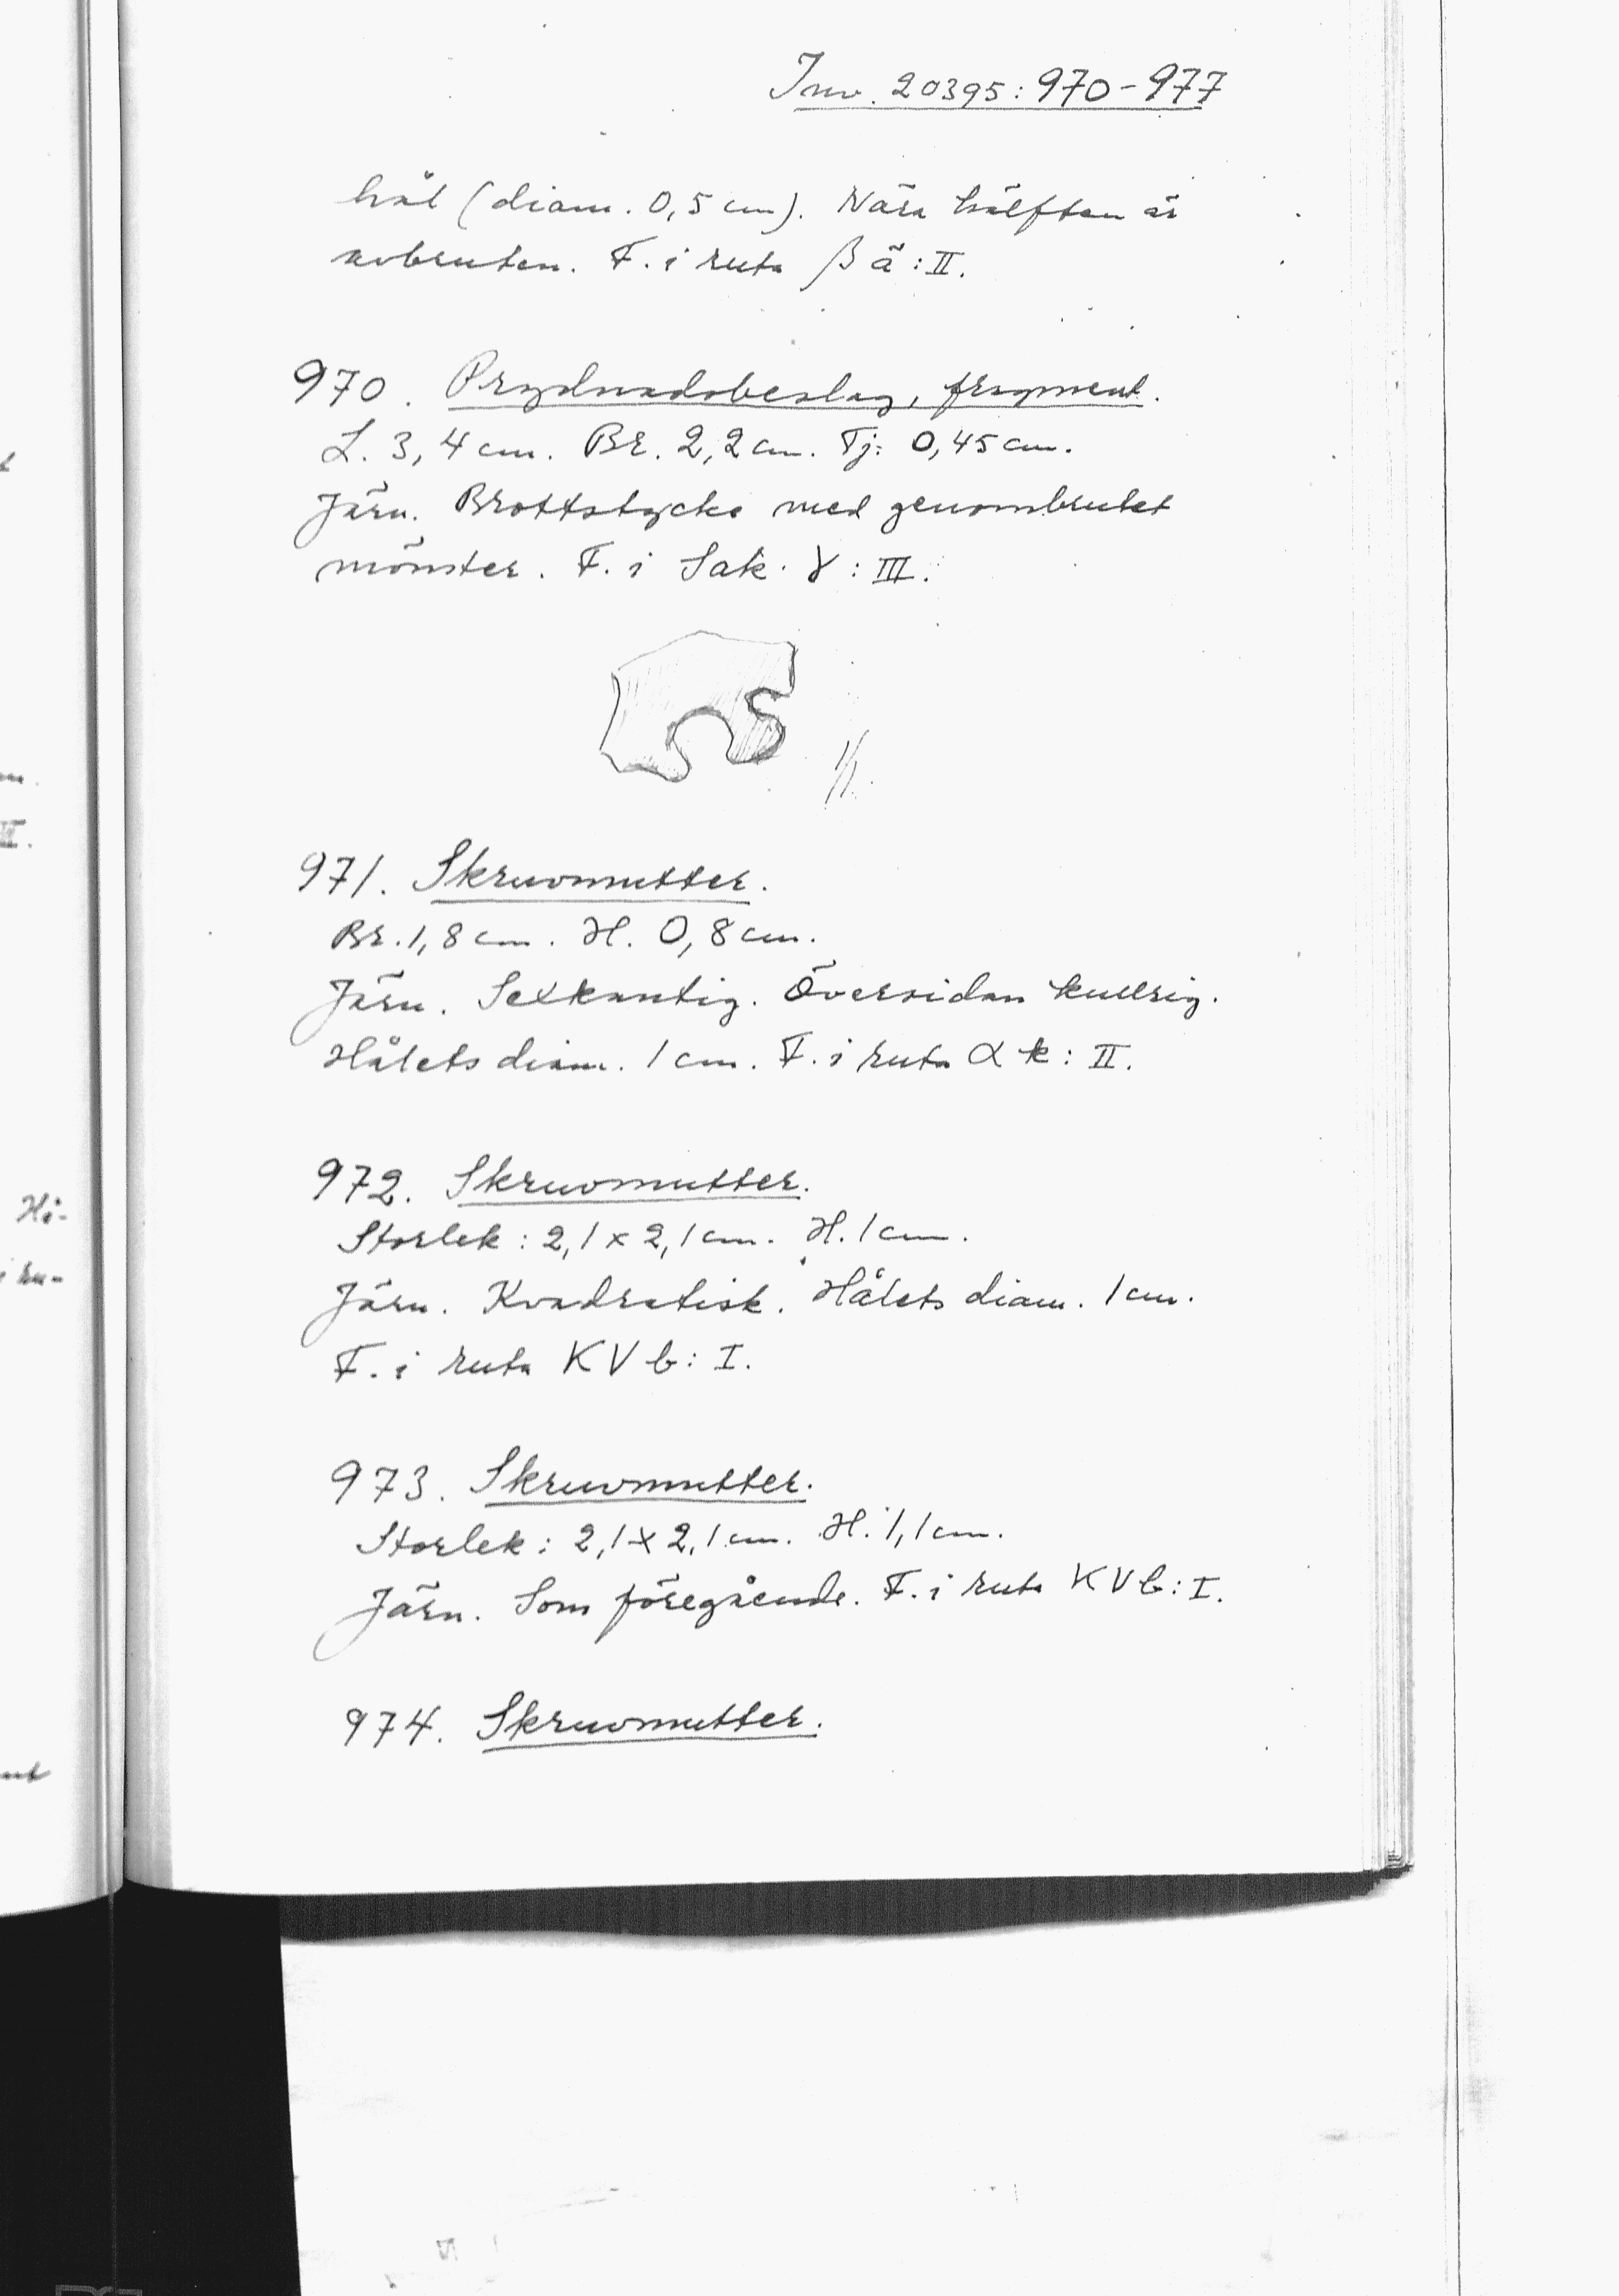 Inv. 20395:970-977
hål (diam. 0,5 cm). Nära hälften är
avbruten. F. i ruta β ä : II.
970. Prydnadsbeslag, fragment.
L. 3,4 cm. Br. 2,2 cm. Tj: 0,45 cm.
Järn. Brottstycke med genombrutet
mönster. F. i Sak. γ : III.
1/1.
971. Skruvmutter.
Br. 1,8 cm. H. 0,8 cm.
Järn. Sexkantig. Översidan kullrig.
Hålets diam. 1 cm. F. i ruta α k : II.
972. Skruvmutter.
Storlek : 2,1 x 2,1 cm. H. 1 cm.
Järn. Kvadratisk. Hålets diam. 1 cm.
F. i ruta KV b : I.
973. Skruvmutter.
Storlek : 2,1 x 2,1 cm. H. 1,1 cm.
Järn. Som föregående. F. i ruta KV b : I.
974. Skruvmutter.